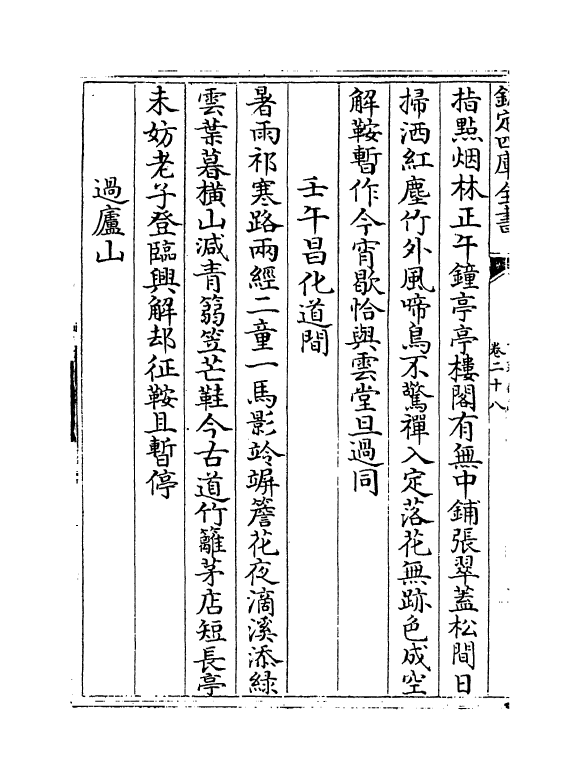 欽定四庫全書
卷二十八
指點烟林正午鐘亭亭樓閣有無中鋪張翠蓋松間日
掃洒紅塵竹外風啼鳥不驚禪入定落花無跡色成空
解鞍暫作今宵歇恰與雲堂旦過同
壬午昌化道間
暑雨祁寒路兩經二童一馬影竛竮簷花夜滴溪添綠
雲葉暮橫山減青篛笠芒鞋今古道竹籬茅店短長亭
未妨老子登臨興解却征鞍且暫停
過廬山